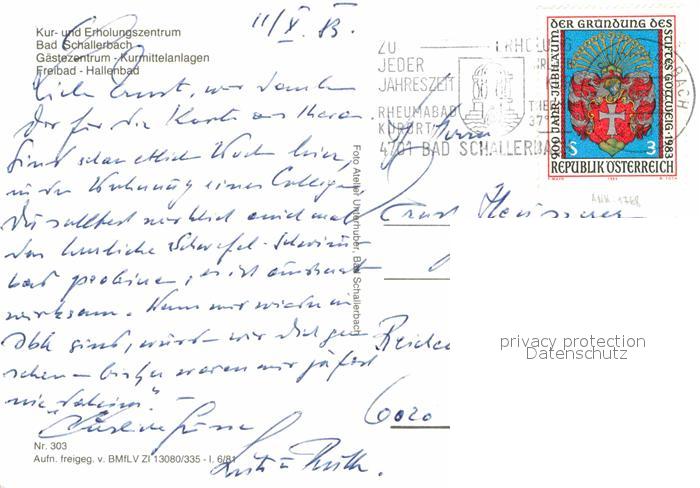 11/X. 83.
Kur- und Erholungszentrum
Bad Schallerbach
Gästezentrum - Kurmittelanlagen
Freibad - Hallenbad
Lieber Ernst, wir danken
Dir für die Karte aus Meran.
Sind schon etlich Wochen hier,
in der Wohnung eines Collegen.
Du solltest wirklich auch mal
das herrliche Schwefel-Schwimm-
bad probieren, es ist äusserst
wirksam. Wenn wir wieder in
Ibk sind, würden wir Dich gern
sehen - bisher waren wir
nie "daheim". -
Herzliche Grüsse
Nr. 303
Aufn. freigeg. v. BMfLV Zl 13080/335 - I. 6/81
Foto Atelier Unterhuber, Bad Schallerbach
ZU
JEDER
JAHRESZEIT
ERHOLUNG
RHEUMABAD
KURORT
4701 BAD SCHALLERBACH
900 JAHR-JUBILÄUM DER GRÜNDUNG DES STIFTES GÖTTWEIG·1983
S 3
REPUBLIK ÖSTERREICH
ANK 1768
Herrn
Ernst
6020
privacy protection
Datenschutz